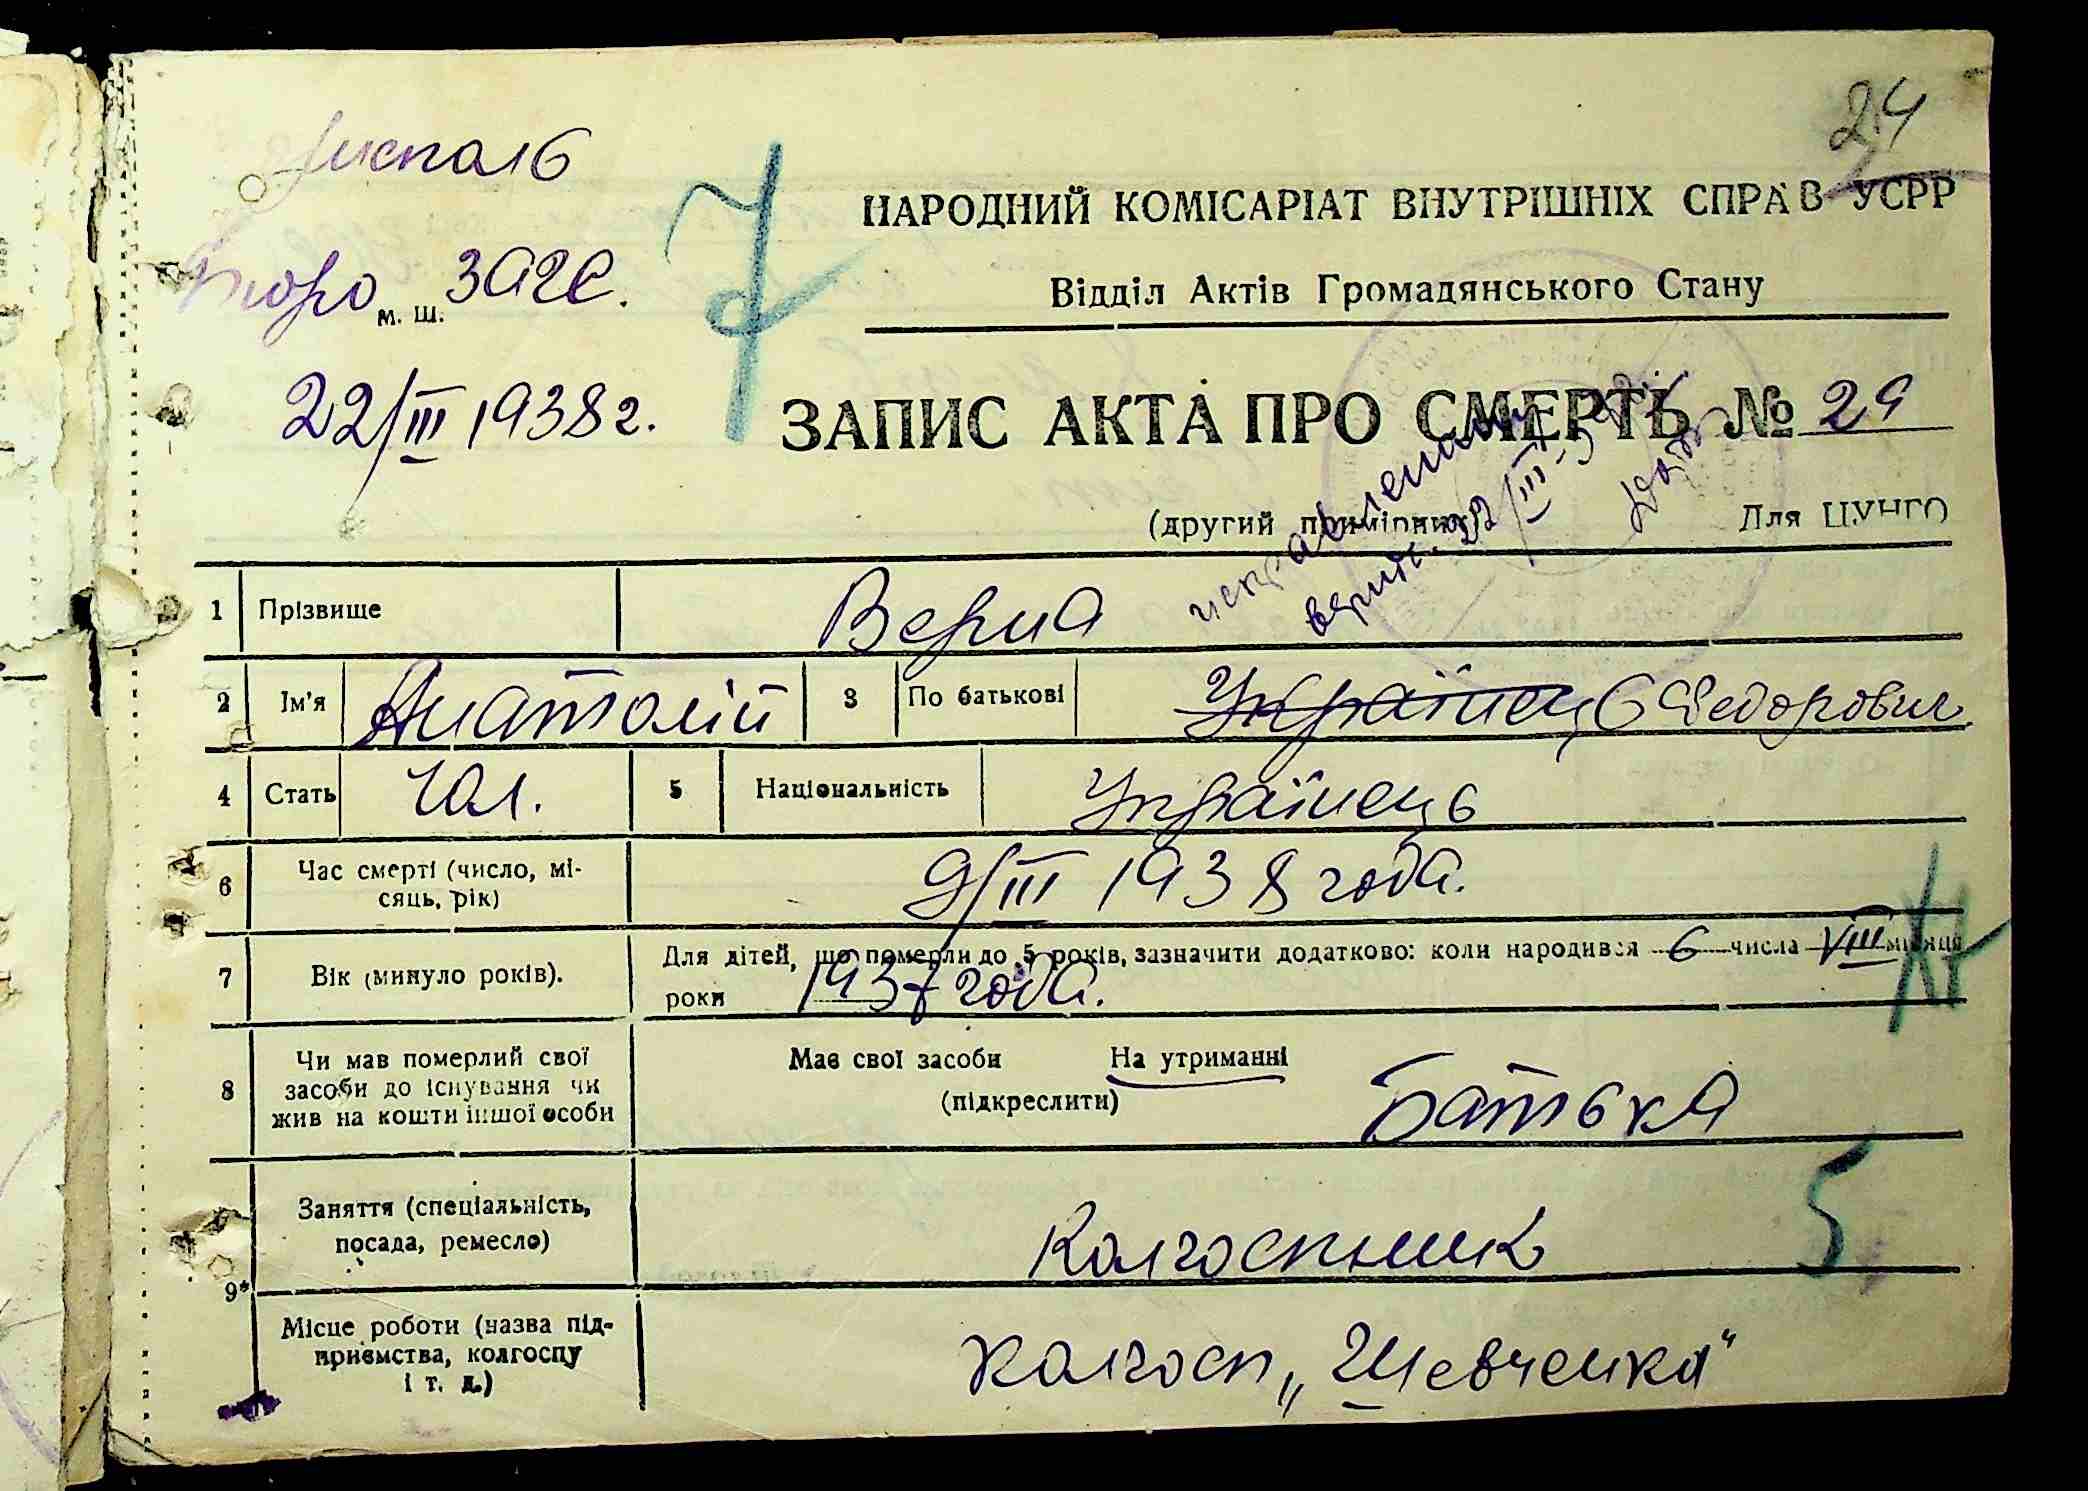 24
НАРОДНИЙ КОМІСАРІАТ ВНУТРІШНІХ СПРАВ УСРР
Відділ Актів Громадянського Стану
Бюро м. ш. ЗАГС.
7
22/III 1938 г.
ЗАПИС АКТА ПРО СМЕРТЬ № 29
(другий примірник) Для ЦУНГО
исправленному
верить 22/III-38 г.
1 Прізвище Верна
2 Ім'я Анатолій 3 По батькові Українець Федорович
4 Стать Чол. 5 Національність Українець
6 Час смерті (число, мі-
сяць, рік) 9/III 1938 года.
7 Вік (минуло років). Для дітей, що померли до 5 років, зазначити додатково: коли народився 6 числа VIII місяця
роки 1937 года.
8 Чи мав померлий свої
засоби до існування чи
жив на кошти іншої особи
Має свої засоби На утриманні
(підкреслити) Батька
9*
Заняття (спеціальність,
посада, ремесло) Колгоспник
5
Місце роботи (назва під-
приємства, колгоспу
і т. д.) колгосп „Шевченка"